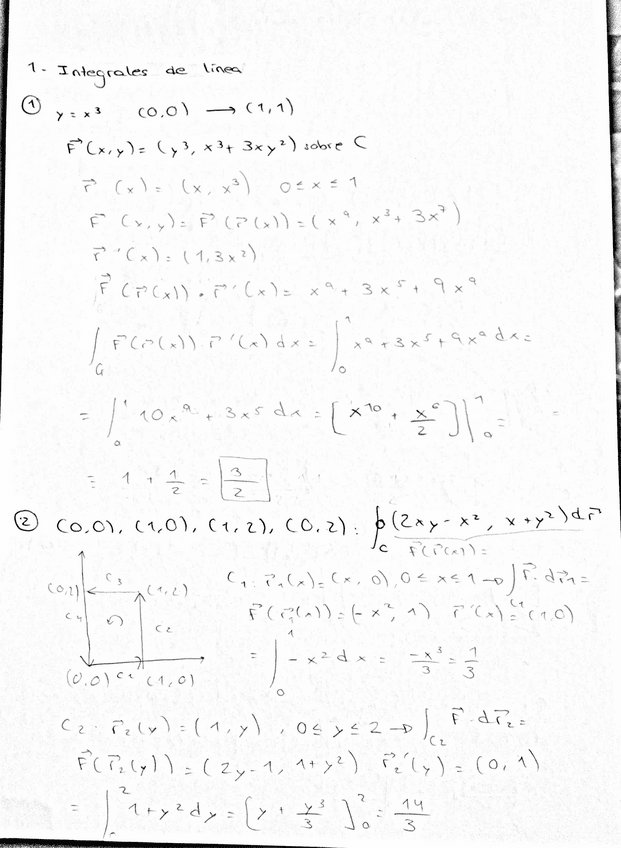 1- Integrales de línea
① y = x³ (0,0) → (1,1)
F⃗(x,y) = (y³, x³ + 3xy²) sobre C
r⃗(x) = (x, x³) 0 ≤ x ≤ 1
F⃗(x,y) = F⃗(r⃗(x)) = (x⁹, x³ + 3x⁷)
r⃗'(x) = (1, 3x²)
F⃗(r⃗(x)) • r⃗'(x) = x⁹ + 3x⁵ + 9x⁹
∫_C F⃗(r⃗(x)) r⃗'(x) dx = ∫₀¹ x⁹ + 3x⁵ + 9x⁹ dx =
= ∫₀¹ 10x⁹ + 3x⁵ dx = [x¹⁰ + x⁶/2]|₀¹ = =
= 1 + 1/2 = 3/2
② (0,0), (1,0), (1,2), (0,2): ∮_C (2xy - x², x + y²) dr⃗
F⃗(r⃗(x)) =
(0,2) C₃ (1,2)
C₄ C₂
(0,0) C₁ (1,0)
C₁: r⃗₁(x) = (x, 0), 0 ≤ x ≤ 1 → ∫_C₁ F⃗·dr⃗₁ =
F⃗(r⃗₁(x)) = (-x², 1) r⃗'(x) = (1,0)
= ∫₀¹ -x² dx = -x³/3 = 1/3
C₂: r⃗₂(y) = (1, y), 0 ≤ y ≤ 2 → ∫_C₂ F⃗·dr⃗₂ =
F⃗(r⃗₂(y)) = (2y-1, 1+y²) r⃗₂'(y) = (0, 1)
= ∫₀² 1 + y² dy = [y + y³/3]₀² = 14/3